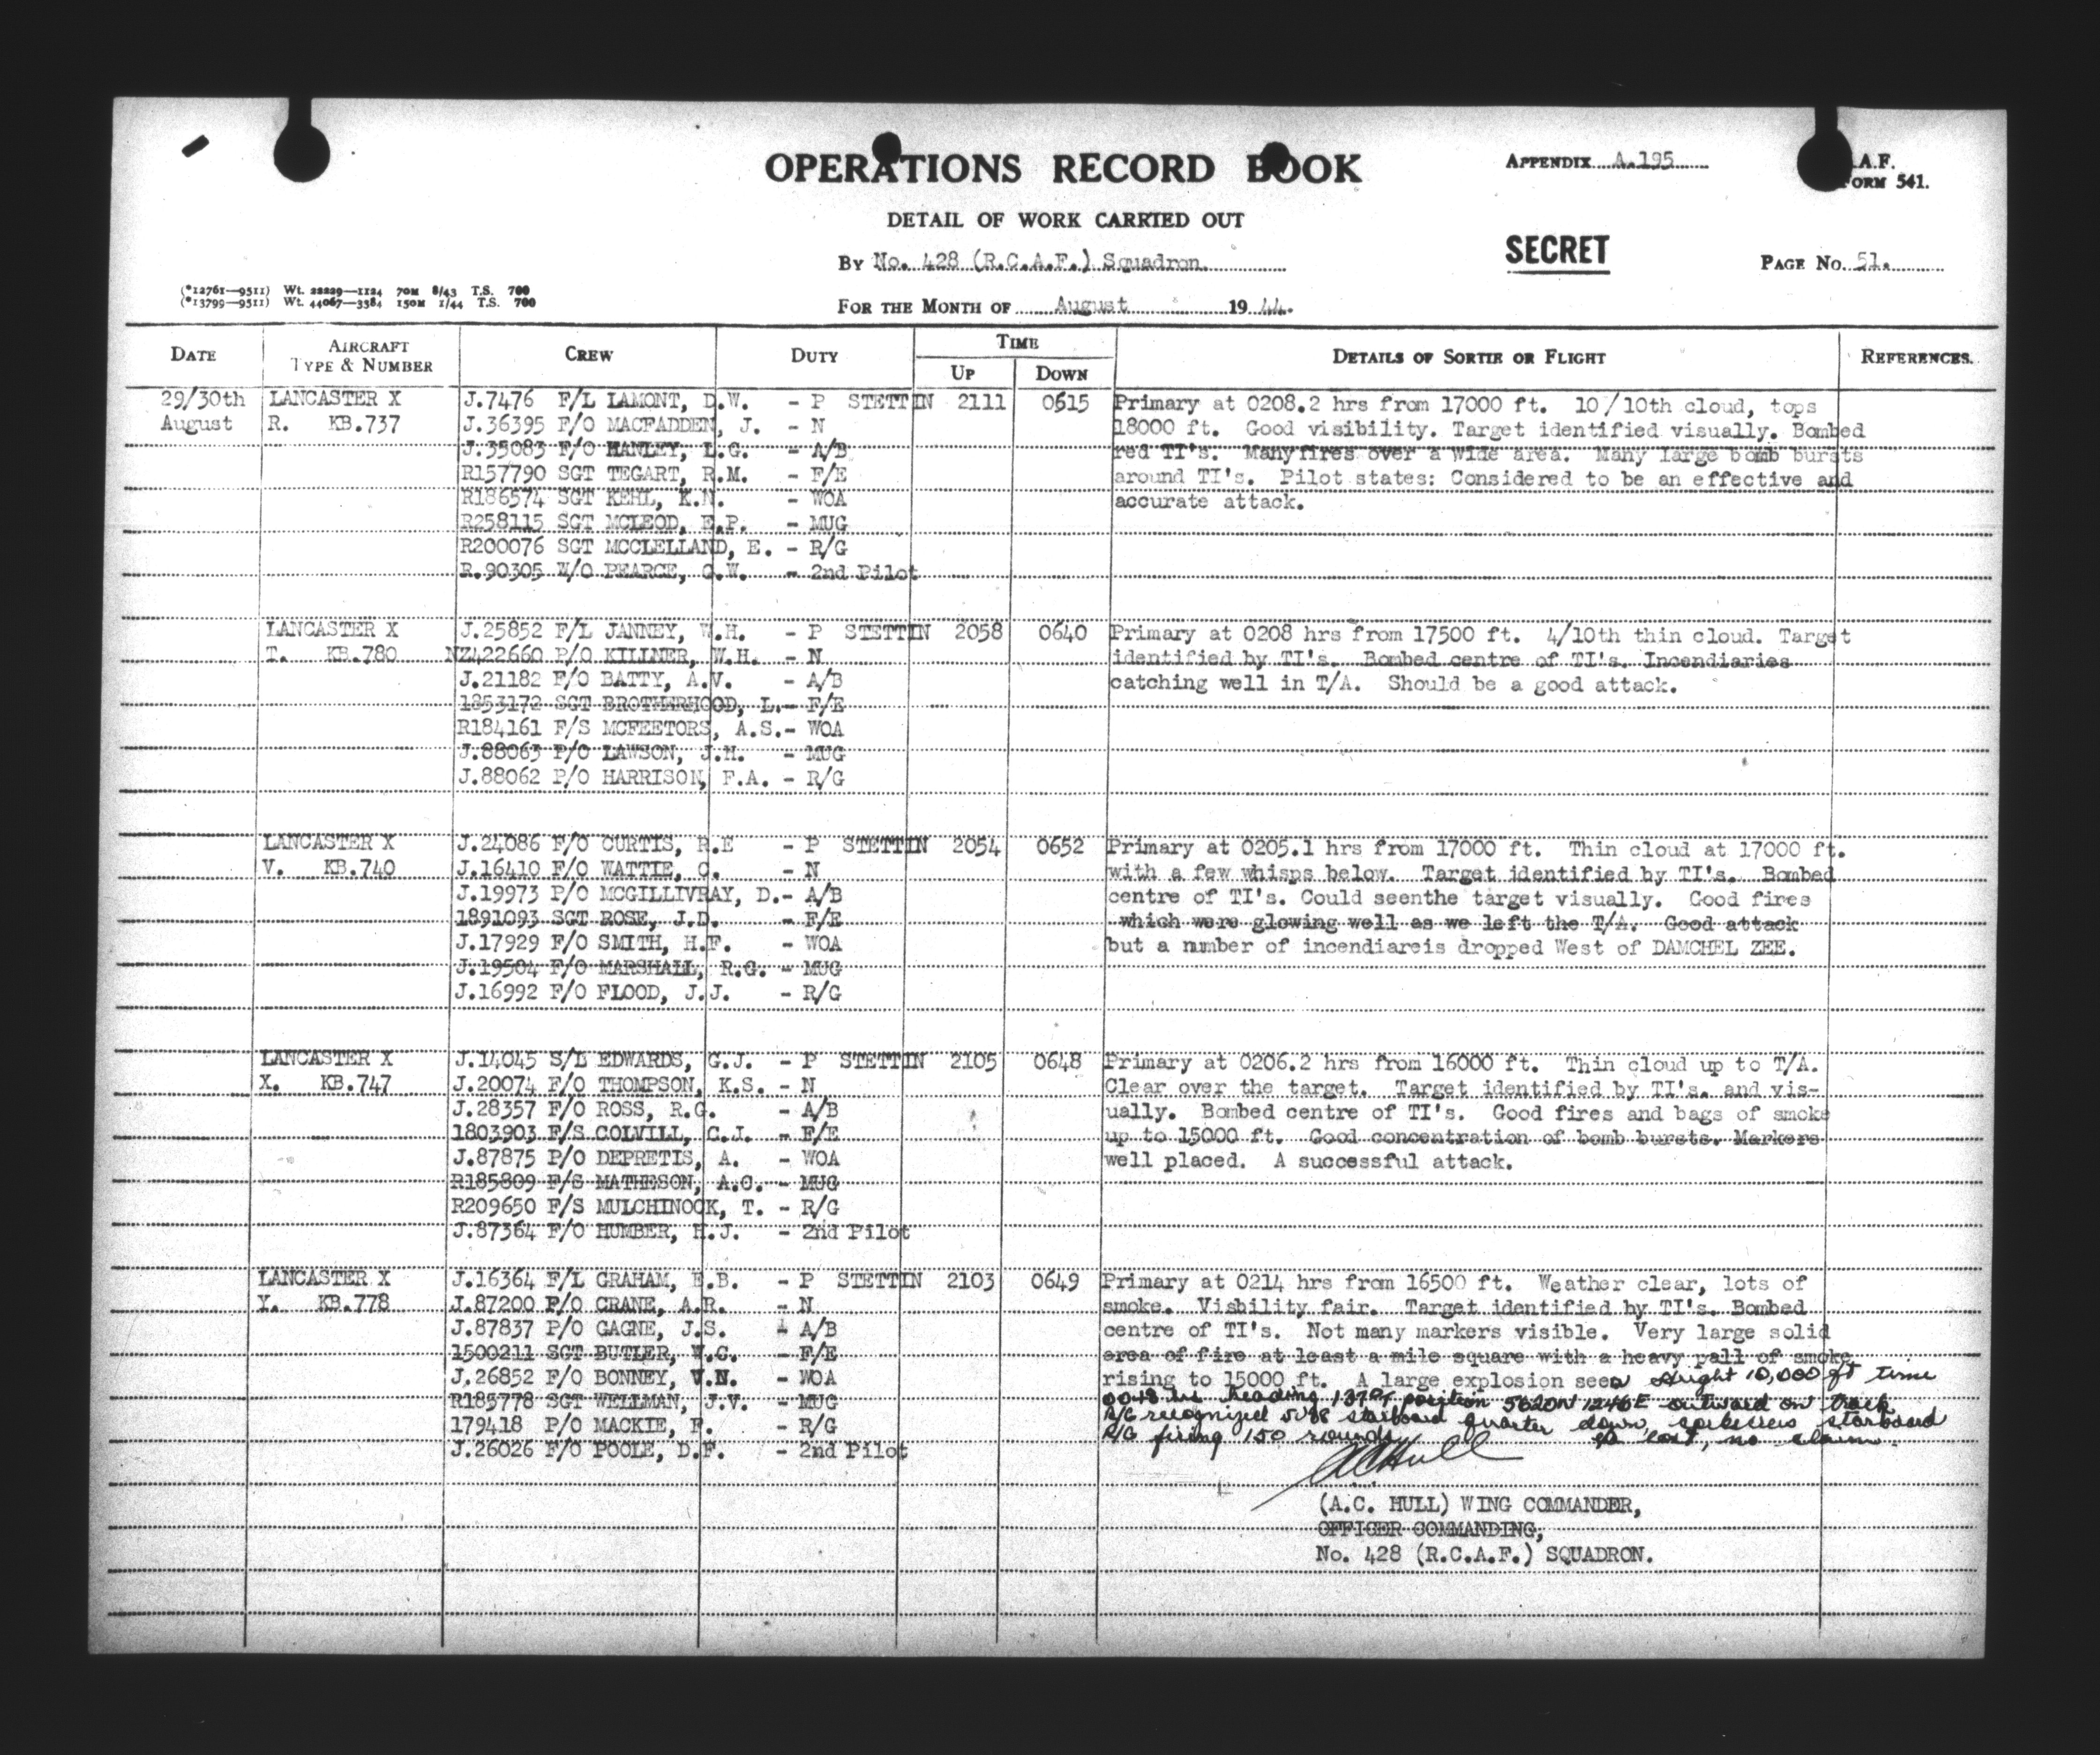 OPERATIONS RECORD BOOK
APPENDIX A.195
.A.F.
FORM 541.
DETAIL OF WORK CARRIED OUT
SECRET
By No. 428 (R.C.A.F.) Squadron.
PAGE NO. 51.
(*12761—9511) Wt. 22229—1124 70M 8/43 T.S. 700
(*13799—9511) Wt. 44067—3384 150M 1/44 T.S. 700
FOR THE MONTH OF August 19 44.
DATE AIRCRAFT TYPE & NUMBER CREW DUTY TIME UP DOWN DETAILS OF SORTIE OR FLIGHT REFERENCES.
29/30th LANCASTER X J.7476 F/L LAMONT, D.W. - P STETTIN 2111 0615 Primary at 0208.2 hrs from 17000 ft. 10/10th cloud, tops
August R. KB.737 J.36395 F/O MACFADDEN, J. - N 18000 ft. Good visibility. Target identified visually. Bombed
J.35083 F/O HANLEY, L.G. - A/B red TI's. Many fires over a wide area. Many large bomb bursts
R157790 SGT TEGART, R.M. - F/E around TI's. Pilot states: Considered to be an effective and
R186574 SGT KEHL, K.N. - WOA accurate attack.
R258115 SGT MCLEOD, E.P. - MUG
R200076 SGT MCCLELLAND, E. - R/G
R.90305 W/O PEARCE, G.W. - 2nd Pilot
LANCASTER X J.25852 F/L JANNEY, W.H. - P STETTIN 2058 0640 Primary at 0208 hrs from 17500 ft. 4/10th thin cloud. Target
T. KB.780 NZ422660 P/O KILLNER, W.H. - N identified by TI's. Bombed centre of TI's. Incendiaries
J.21182 F/O BATTY, A.V. - A/B catching well in T/A. Should be a good attack.
1853172 SGT BROTHERHOOD, L.- F/E
R184161 F/S MCFEETORS, A.S.- WOA
J.88063 P/O LAWSON, J.H. - MUG
J.88062 P/O HARRISON, F.A. - R/G
LANCASTER X J.24086 F/O CURTIS, R.E - P STETTIN 2054 0652 Primary at 0205.1 hrs from 17000 ft. Thin cloud at 17000 ft.
V. KB.740 J.16410 F/O WATTIE, C. - N with a few whisps below. Target identified by TI's. Bombed
J.19973 P/O MCGILLIVRAY, D.- A/B centre of TI's. Could seenthe target visually. Good fires
1891093 SGT ROSE, J.D. - F/E which were glowing well as we left the T/A. Good attack
J.17929 F/O SMITH, H.F. - WOA but a number of incendiareis dropped West of DAMCHEL ZEE.
J.19504 F/O MARSHALL, R.G. - MUG
J.16992 F/O FLOOD, J.J. - R/G
LANCASTER X J.14045 S/L EDWARDS, G.J. - P STETTIN 2105 0648 Primary at 0206.2 hrs from 16000 ft. Thin cloud up to T/A.
X. KB.747 J.20074 F/O THOMPSON, K.S. - N Clear over the target. Target identified by TI's. and vis-
J.28357 F/O ROSS, R.G. - A/B ually. Bombed centre of TI's. Good fires and bags of smoke
1803903 F/S COLVILL, C.J. - F/E up to 15000 ft. Good concentration of bomb bursts. Markers
J.87875 P/O DEPRETIS, A. - WOA well placed. A successful attack.
R185809 F/S MATHESON, A.C. - MUG
R209650 F/S MULCHINOCK, T. - R/G
J.87364 F/O HUMBER, H.J. - 2nd Pilot
LANCASTER X J.16364 F/L GRAHAM, E.B. - P STETTIN 2103 0649 Primary at 0214 hrs from 16500 ft. Weather clear, lots of
Y. KB.778 J.87200 P/O CRANE, A.R. - N smoke. Visbility fair. Target identified by TI's. Bombed
J.87837 P/O GAGNE, J.S. - A/B centre of TI's. Not many markers visible. Very large solid
1500211 SGT BUTLER, W.C. - F/E area of fire at least a mile square with a heavy pall of smoke
J.26852 F/O BONNEY, V.N. - WOA rising to 15000 ft. A large explosion seen height 10,000 ft time
R185778 SGT WELLMAN, J.V. - MUG 0048 hrs heading 137°T position 5620N 1246E outward on track
179418 P/O MACKIE, F. - R/G R/G recognized starboard quarter down, starboard
J.26026 F/O POOLE, D.F. - 2nd Pilot R/G firing 150 rounds lost, no claim.
A C Hull
(A.C. HULL) WING COMMANDER,
OFFICER COMMANDING,
No. 428 (R.C.A.F.) SQUADRON.